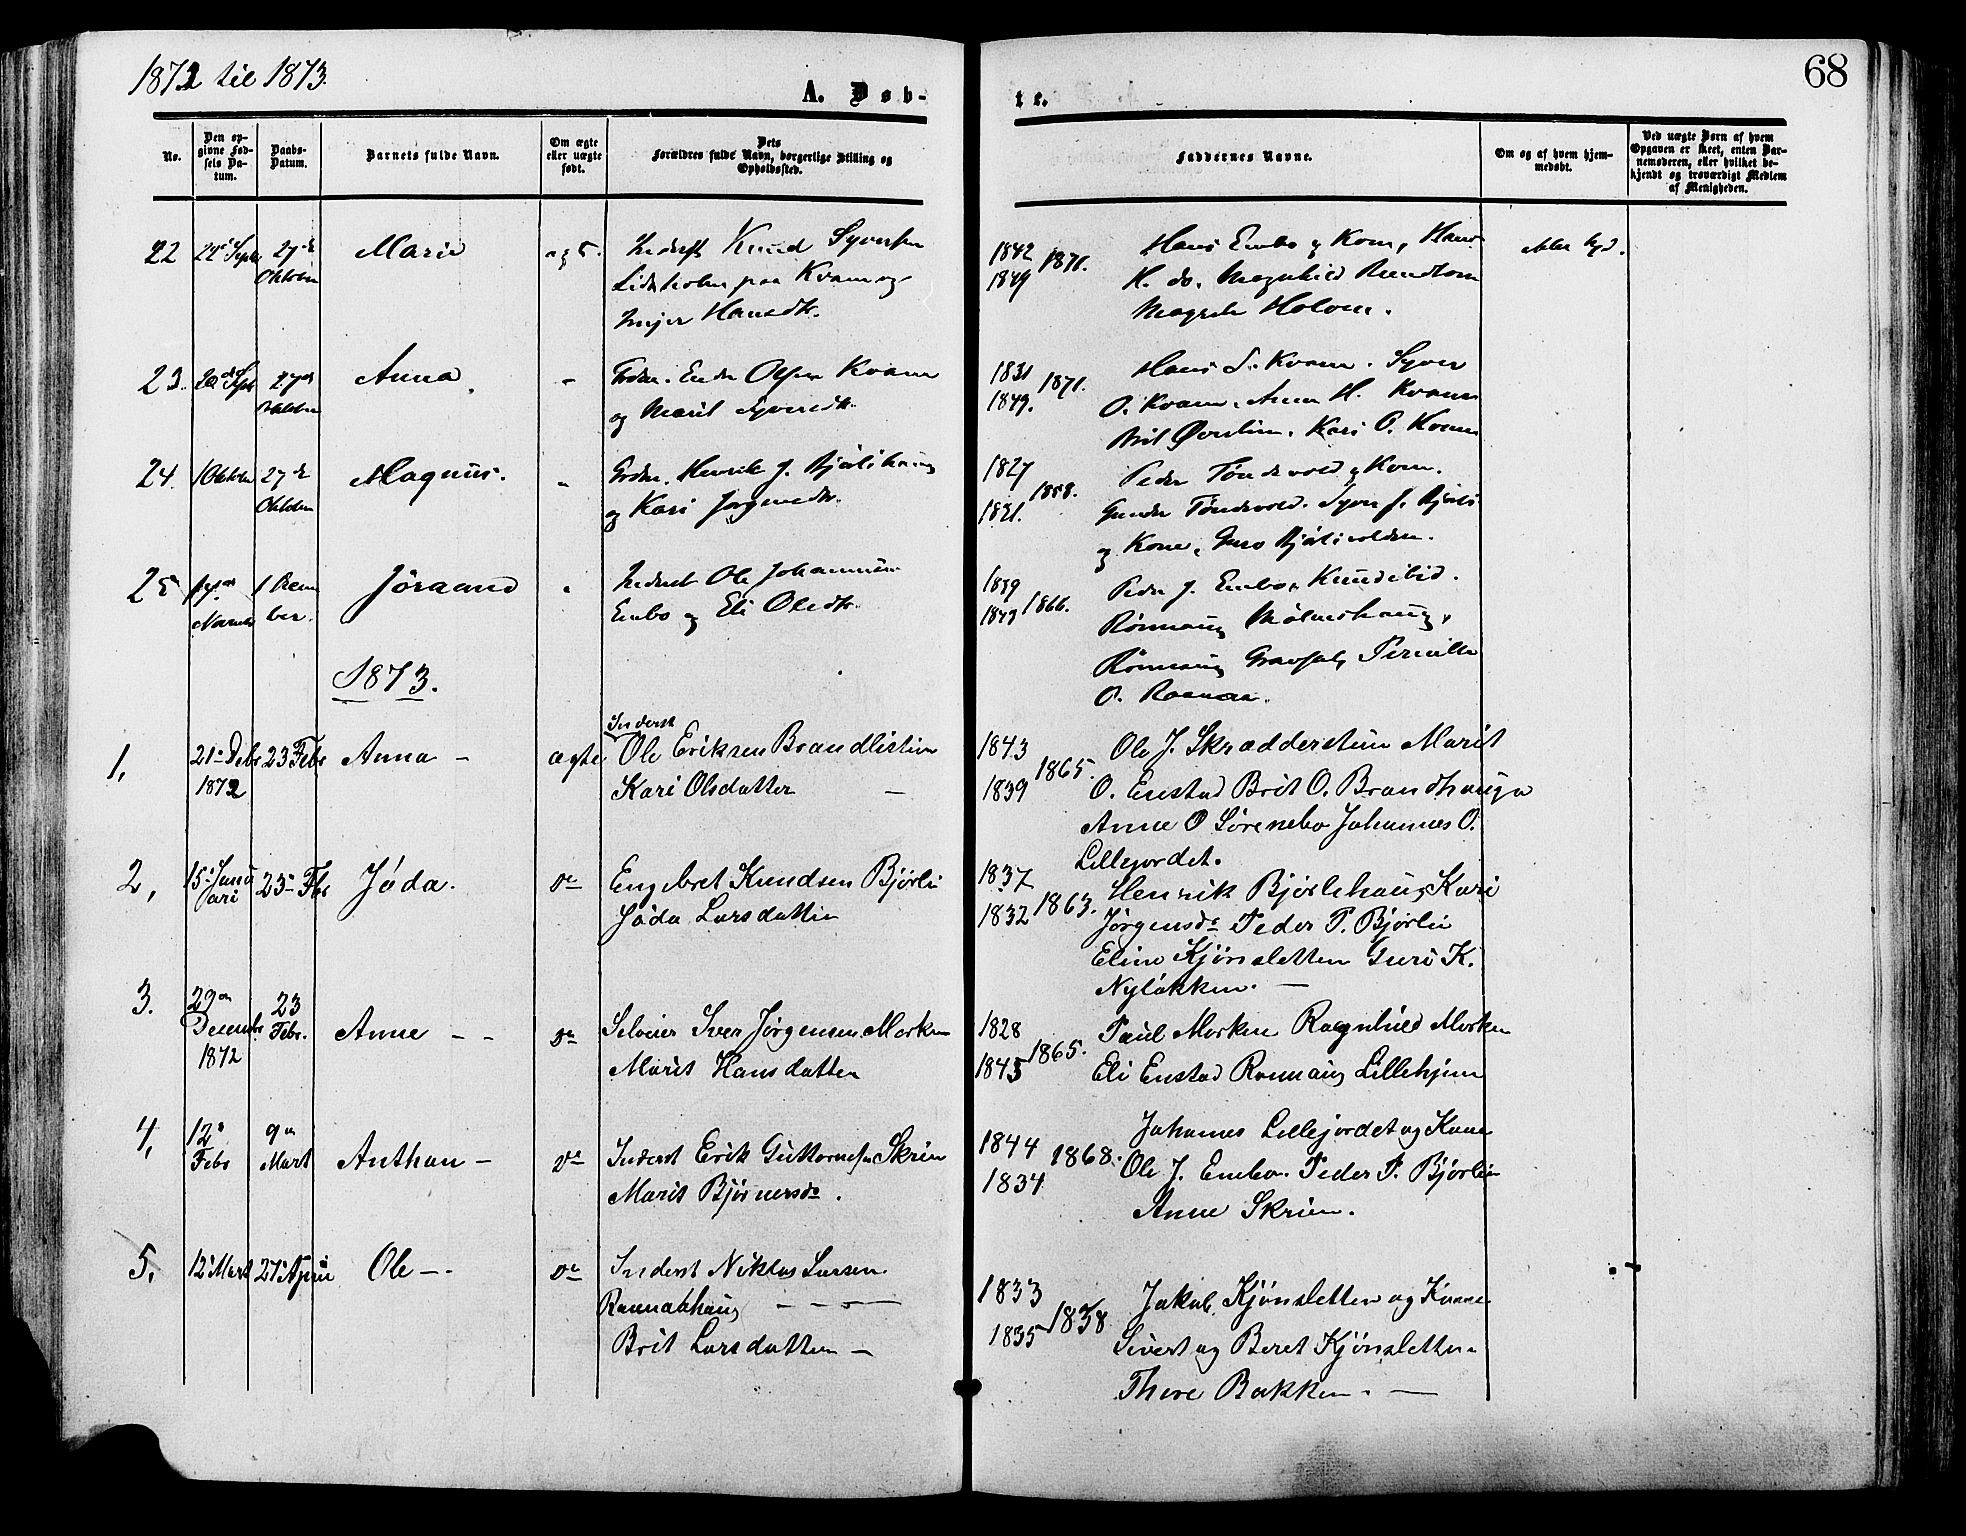 1872 til 1873.
68
A. Døb-
te.
No.
Den op-
givne Fød-
sels Da-
tum.
Daabs-
Datum.
Barnets fulde Navn.
Om ægte
eller uægte
født.
Dets
Forældres fulde Navn, borgerlige Stilling og
Opholdssted.
Faddernes Navne.
Om og af hvem hjem-
medøbt.
Ved uægte Børn af hvem
Opgaven er skeet, enten Bar-
nemoderen, eller hvilket be-
kjendt og troværdigt Medlem
af Menigheden.
22
27de
Oktober
Marie
Inderst Knud Syversen
paa Kvam og
Hansdtr.
1842
1849
1871.
Hans Embo og Kone, Hans
K. do. Magnhild
Holven.
23.
27de
Oktober
Anna
Ender Olsen Kvam
og Marit Syversdtr.
1831
1849.
1871.
Hans S. Kvam. Syver
O. Kvam, Anna H. Kvam
Brit Kari O. Kvam
24.
1 Oktober
27de
Oktober
Magnus.
Henrik J. Bjølihaug
og Kari Jørgensdtr.
1827
1831.
1858.
Peder Tøndevold og Kone.
Gunder Tøndevold. Syver J.
og Kone, Guro
25
14de
Novemb
1 Decem
ber.
Jøraand
Inderst Ole Johannessen
Embo og Eli Olsdtr.
1839
1843
1866.
Peder J. Embo,
Rønnaug Mølmshaug,
Rønnaug Pernille
O.
1873.
1,
21 Debr
1872
23 Febr
Anna -
ægte
Inderst
Ole Eriksen Brandlistuen
Kari Olsdatter -
1843
1839
1865.
Ole J. Skrædderstuen Marit
O. Enstad Brit O. Brandhaugn
Anne O Sørenebo Johannes O.
Lillejordet.
2,
15 Janu
ari
23 Febr
Jøda.
do
Engebret Knudsen Bjørli
Jøda Larsdatter
1837
1832
1863.
Henrik Bjørlihaug Kari
Jørgensdr Peder P. Bjørli
Eline Kjønsletten Guri K.
Nyløkken. -
3.
29de
Decembr
1872
23
Febr.
Anne - -
do
Selveier Iver Jørgensen Morken
Marit Hansdatter
1828
1843
1865.
Paul Morken Ragnhild Morken
Eli Enstad Rønnaug Lillehjem
4,
12te
Febr
9de
Mart
Anthon -
do
Inderst Erik Guttormsen Skrien
Marit Bjørnersdr.
1844
1834
1868.
Johannes Lillejordet og Kone
Ole J. Embo. Peder P. Bjørlien
Anne Skrien.
5,
12 Mart
27 April
Ole -.
do
Inderst Niklas Larsen
Rønnabhaug - - - -
Brit Larsdatter -
1833
1835
1858
Jakob Kjønsletten og Kone
Sivert og Beret Kjønsletten
Thore Bakken. -